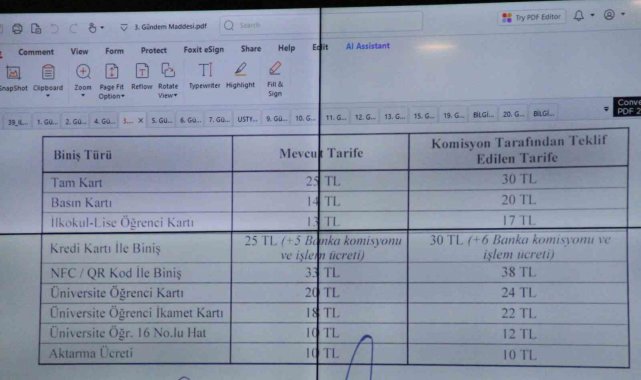 3. Gündem Maddesi.pdf
Search
Try PDF Editor
Comment View Form Protect Foxit eSign Share Help Edit AI Assistant
SnapShot Clipboard Zoom Page Fit Option Reflow Rotate View Typewriter Highlight Fill & Sign
39_IL... 1. Gü... 2. Gü... 4. Gü... 3.... X 5. Gü... 6. Gü... 7. Gü... USTY... 9. Gü... 10. G... 11. G... 12. G... 13. G... 15. G... 19. G... BİLGİ... 20. G... BİLGİ...
Conve
PDF 2
Biniş Türü Mevcut Tarife Komisyon Tarafından Teklif
Edilen Tarife
Tam Kart 25 TL 30 TL
Basın Kartı 14 TL 20 TL
İlkokul-Lise Öğrenci Kartı 13 TL 17 TL
Kredi Kartı İle Biniş 25 TL (+5 Banka komisyonu ve işlem ücreti) 30 TL (+6 Banka komisyonu ve işlem ücreti)
NFC / QR Kod İle Biniş 33 TL 38 TL
Üniversite Öğrenci Kartı 20 TL 24 TL
Üniversite Öğrenci İkamet Kartı 18 TL 22 TL
Üniversite Öğr. 16 No.lu Hat 10 TL 12 TL
Aktarma Ücreti 10 TL 10 TL